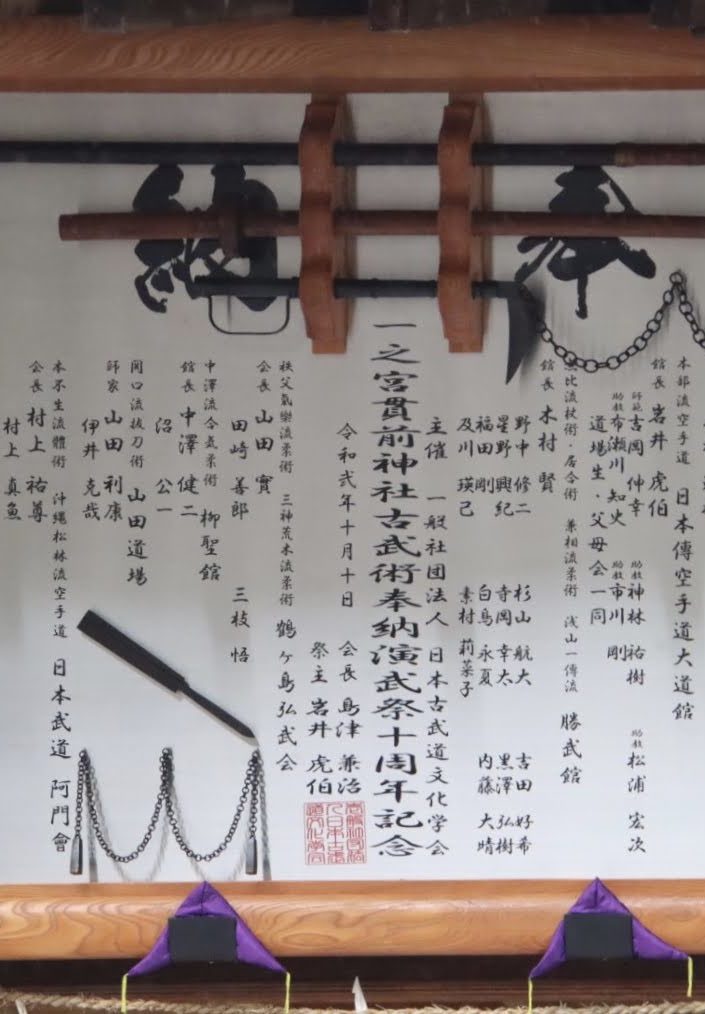 奉納
本部流空手道 日本傳空手道大道館
館長 岩井 虎伯
師範 古岡 伸幸 助教 神林 祐樹 助教 松浦 宏次
助教 布瀬川 知史 助教 市川 剛
道場生・父母会一同
比流杖術・居合術 兼相流柔術 浅山一傳流 勝武館
館長 木村 賢
野中 修二 杉山 航大 吉田 好希
星野 興紀 寺岡 幸太 黒澤 弘樹
福田 剛 白鳥 永夏 内藤 大晴
及川 瑛己 素村 莉菜子
主催 一般社団法人 日本古武道文化学会
一之宮貫前神社古武術奉納演武祭十周年記念
令和弐年十月十日 会長 島津 兼治
祭主 岩井 虎伯
秩父氣樂流柔術 三神荒木流柔術 鶴ヶ島弘武会
会長 山田 實
田崎 善郎 三枝 悟
中澤流合気柔術 柳聖館
館長 中澤 健二
沼 公一
関口流抜刀術 山田道場
師家 山田 利康
伊井 克哉
本不生流體術 沖縄松林流空手道 日本武道 阿門會
会長 村上 祐尊
村上 真魚